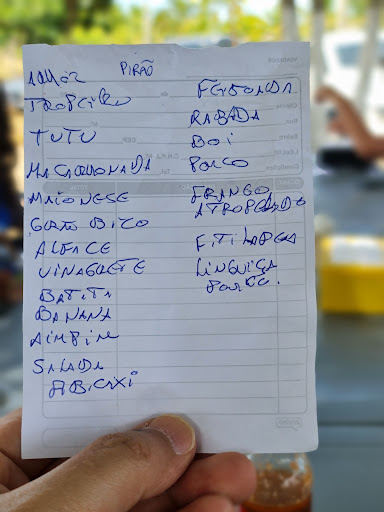 ARROZ
PIRÃO
TROPEIRO
TUTU
MACARRONADA
MAIONESE
GRÃO BICO
ALFACE
VINAGRETE
BATATA
BANANA
AIMPIM
SALADA
ABACAXI
FEIJOADA
RABADA
BOI
PORCO
FRANGO
ATROPELADO
FI TILAPIA
LINGUIÇA
PORCO.